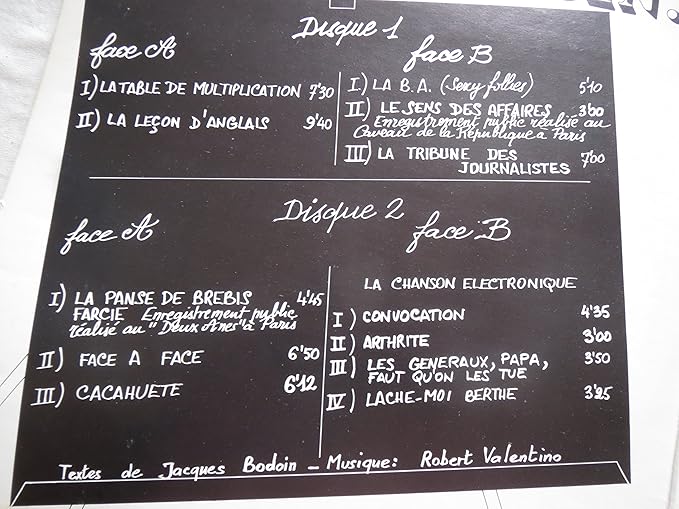 Disque 1
face A
I) LA TABLE DE MULTIPLICATION 7'30
II) LA LEÇON D'ANGLAIS 9'40
face B
I) LA B.A. (Sexy follies) 5'10
II) LE SENS DES AFFAIRES 3'00
Enregistrement public réalisé au
Caveau de la République a Paris
III) LA TRIBUNE DES
JOURNALISTES 7'00
Disque 2
face A
I) LA PANSE DE BREBIS 4'45
FARCIE Enregistrement public
réalisé au "Deux Anes" à Paris
II) FACE A FACE 6'50
III) CACAHUETE 6'12
face B
LA CHANSON ELECTRONIQUE
I) CONVOCATION 4'35
II) ARTHRITE 3'00
III) LES GENERAUX, PAPA, 3'50
FAUT QU'ON LES TUE
IV) LACHE-MOI BERTHE 3'25
Textes de Jacques Bodoin _ Musique: Robert Valentino